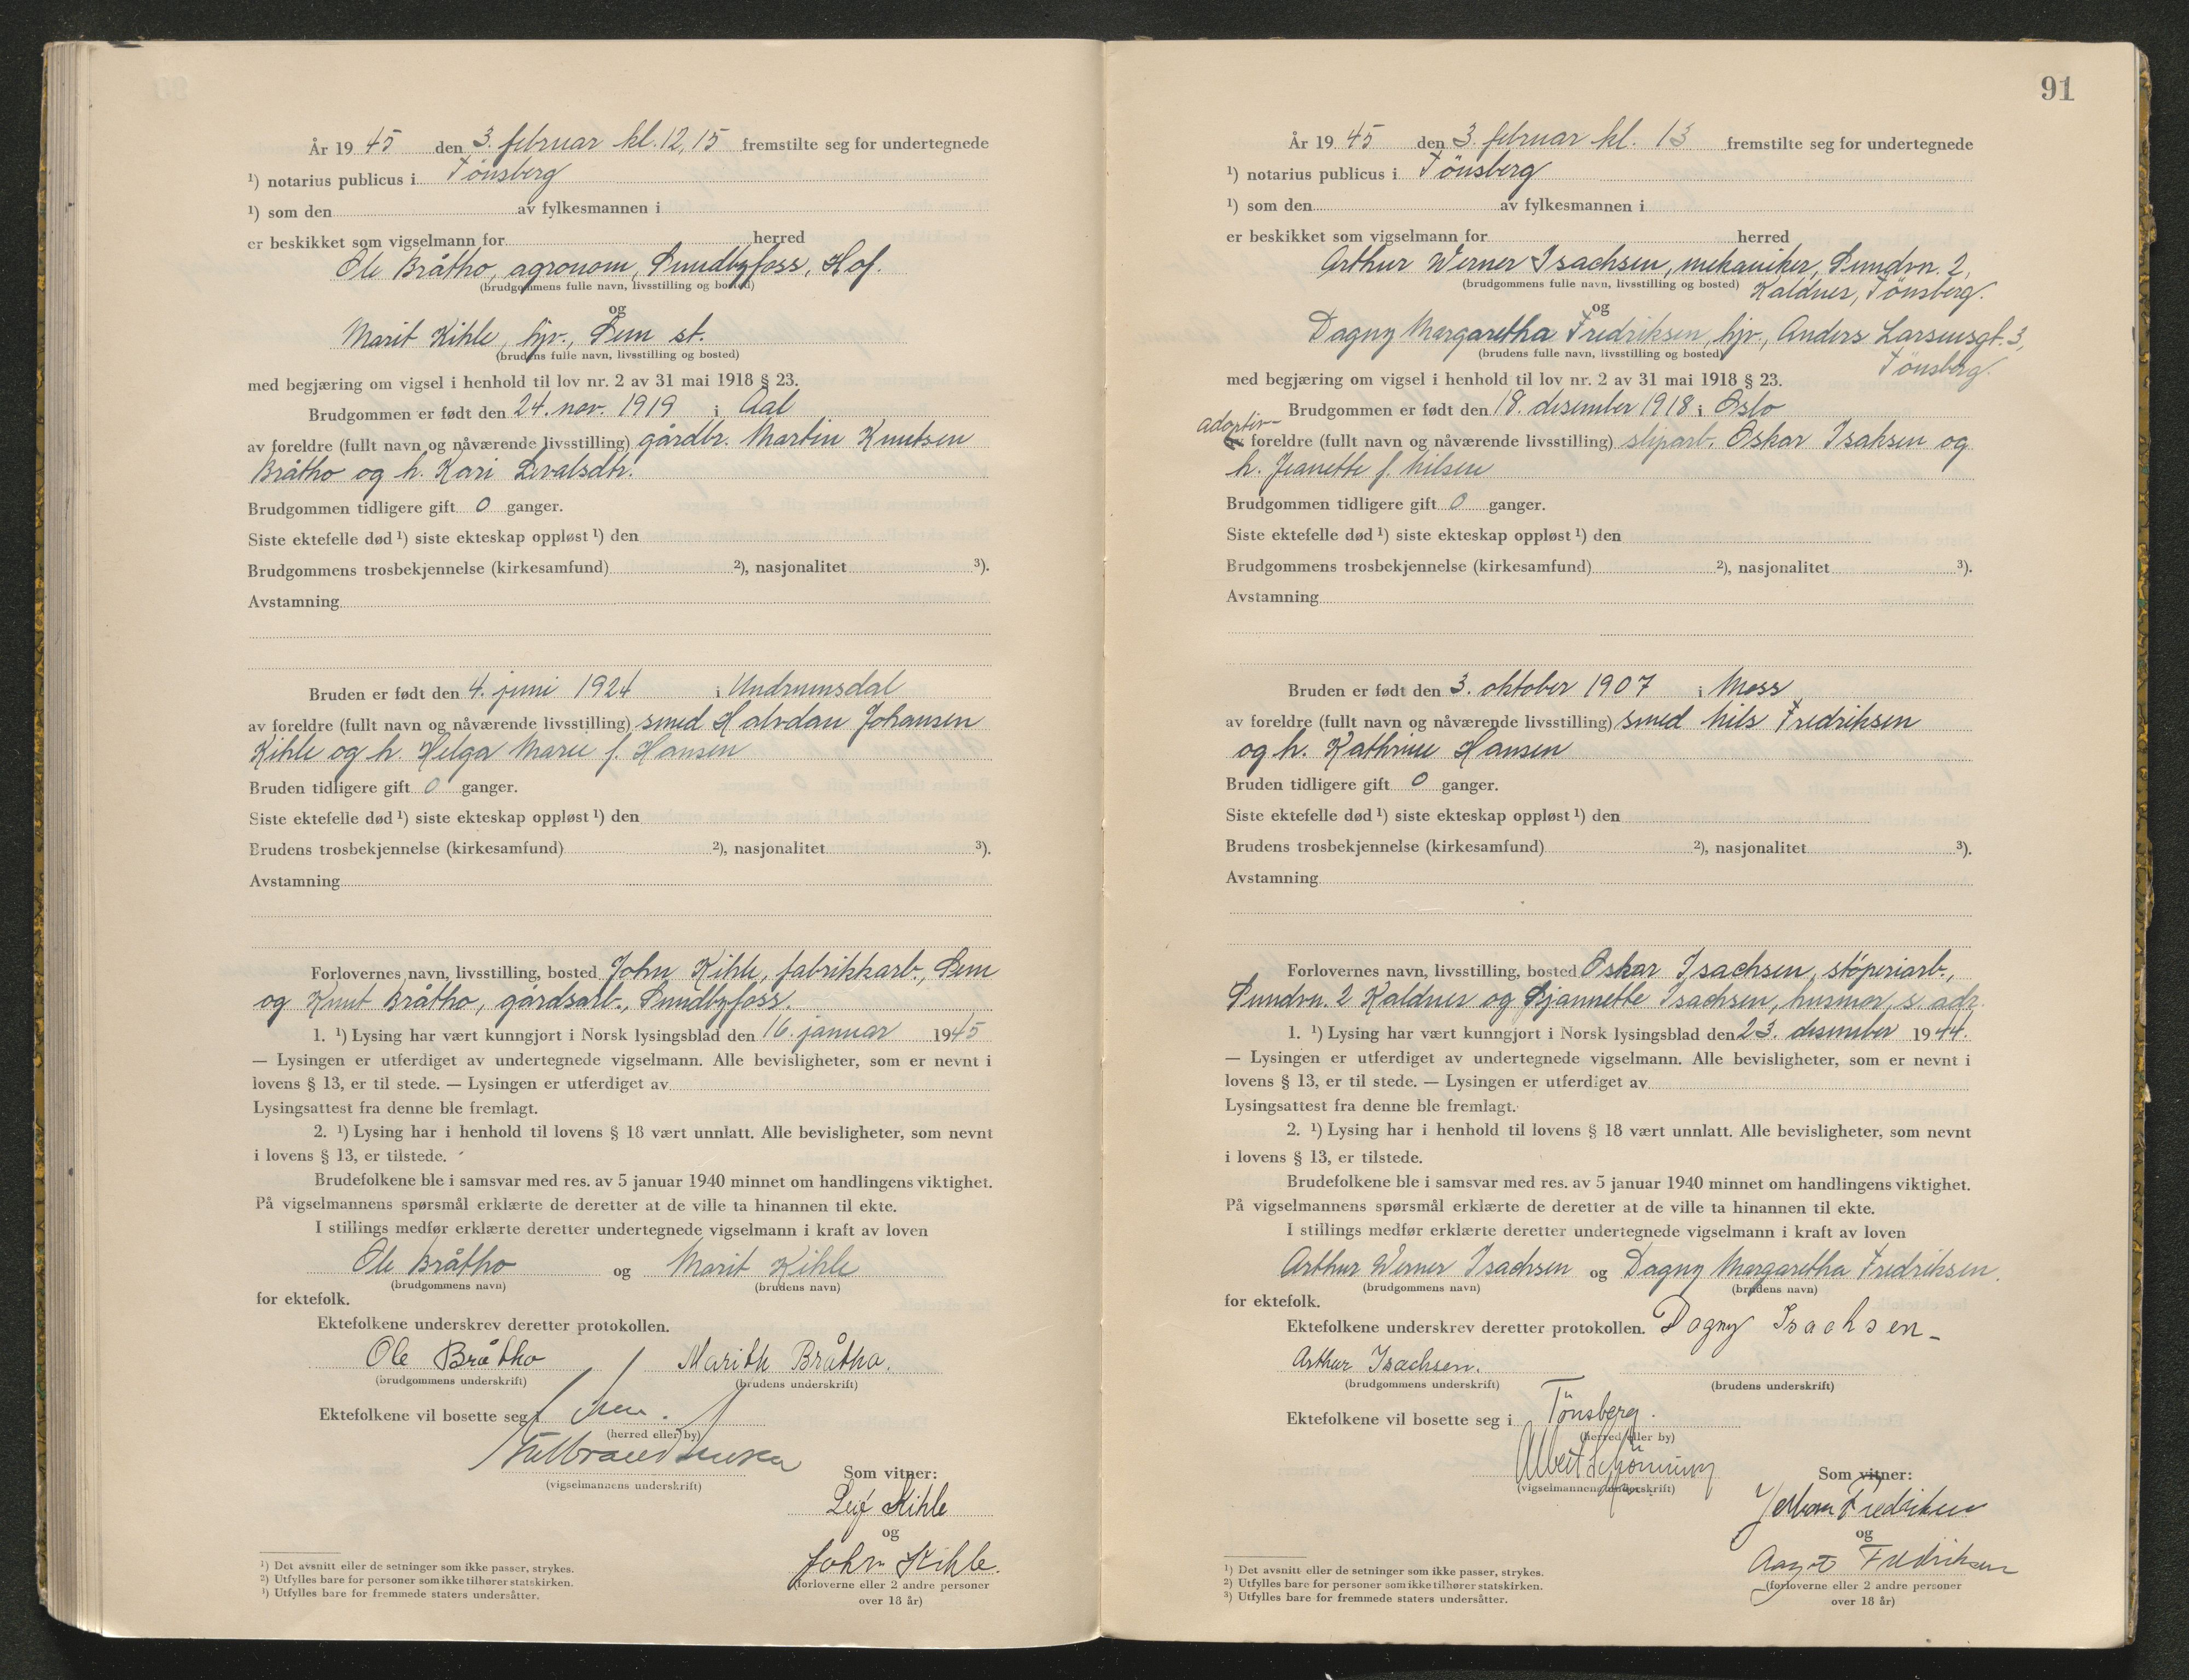 År 19 45 den 3. februar kl. 12,15 fremstilte seg for undertegnede
¹) notarius publicus i Tönsberg
¹) som den av fylkesmannen i
er beskikket som vigselmann for herred
Ole Bråtho, agronom, Sundbyfoss, Hof.
(brudgommens fulle navn, livsstilling og bosted)
og
Marit Kihle, hjv., Sem st.
(brudens fulle navn, livsstilling og bosted)
med begjæring om vigsel i henhold til lov nr. 2 av 31 mai 1918 § 23.
Brudgommen er født den 24. nov. 1919 i Aal
av foreldre (fullt navn og nåværende livsstilling) gårdbr. Martin Knutsen
Bråtho og h. Kari Levalsdtr.
Brudgommen tidligere gift 0 ganger.
Siste ektefelle død ¹) siste ekteskap oppløst ¹) den
Brudgommens trosbekjennelse (kirkesamfund) ²), nasjonalitet ³).
Avstamning
Bruden er født den 4. juni 1924 i Undrumsdal
av foreldre (fullt navn og nåværende livsstilling) smed Halvdan Johansen
Kihle og h. Helga Marie f. Hansen
Bruden tidligere gift 0 ganger.
Siste ektefelle død ¹) siste ekteskap oppløst ¹) den
Brudens trosbekjennelse (kirkesamfund) ²), nasjonalitet ³).
Avstamning
Forlovernes navn, livsstilling, bosted John Kihle, fabrikkarb., Sem
og Knut Bråtho, gårdsarb., Sundbyfoss.
1. ¹) Lysing har vært kunngjort i Norsk lysingsblad den 16. januar 1945
— Lysingen er utferdiget av undertegnede vigselmann. Alle bevisligheter, som er nevnt i
lovens § 13, er til stede. — Lysingen er utferdiget av
Lysingsattest fra denne ble fremlagt.
2. ¹) Lysing har i henhold til lovens § 18 vært unnlatt. Alle bevisligheter, som nevnt
i lovens § 13, er tilstede.
Brudefolkene ble i samsvar med res. av 5 januar 1940 minnet om handlingens viktighet.
På vigselmannens spørsmål erklærte de deretter at de ville ta hinannen til ekte.
I stillings medfør erklærte deretter undertegnede vigselmann i kraft av loven
Ole Bråtho og Marit Kihle
(brudgommens navn) (brudens navn)
for ektefolk.
Ektefolkene underskrev deretter protokollen.
Ole Bråtho Marith Bråtho.
(brudgommens underskrift) (brudens underskrift)
Ektefolkene vil bosette seg i Sem.
(herred eller by)
(vigselmannens underskrift)
Som vitner:
Leif Kihle
og
John Kihle.
(forloverne eller 2 andre personer
over 18 år)
¹) Det avsnitt eller de setninger som ikke passer, strykes.
²) Utfylles bare for personer som ikke tilhører statskirken.
³) Utfylles bare for fremmede staters undersåtter.
91
År 19 45 den 3. februar kl. 13 fremstilte seg for undertegnede
¹) notarius publicus i Tönsberg
¹) som den av fylkesmannen i
er beskikket som vigselmann for herred
Arthur Werner Isachsen, mekaniker, Sundvn. 2,
(brudgommens fulle navn, livsstilling og bosted) Kaldnes, Tönsberg.
og
Dagny Margaretha Fredriksen, hjv., Anders Larsensgt. 3,
(brudens fulle navn, livsstilling og bosted) Tönsberg.
med begjæring om vigsel i henhold til lov nr. 2 av 31 mai 1918 § 23.
Brudgommen er født den 18. desember 1918 i Oslo
adoptiv-
av foreldre (fullt navn og nåværende livsstilling) sliparb. Oskar Isaksen og
h. Jeanette f. Nilsen
Brudgommen tidligere gift 0 ganger.
Siste ektefelle død ¹) siste ekteskap oppløst ¹) den
Brudgommens trosbekjennelse (kirkesamfund) ²), nasjonalitet ³).
Avstamning
Bruden er født den 3. oktober 1907 i Moss
av foreldre (fullt navn og nåværende livsstilling) smed Nils Fredriksen
og h. Kathrine Hansen
Bruden tidligere gift 0 ganger.
Siste ektefelle død ¹) siste ekteskap oppløst ¹) den
Brudens trosbekjennelse (kirkesamfund) ²), nasjonalitet ³).
Avstamning
Forlovernes navn, livsstilling, bosted Oskar Isachsen, støperiarb.,
Sundvn. 2 Kaldnes og Sjannette Isachsen, husmor, s. adr.
1. ¹) Lysing har vært kunngjort i Norsk lysingsblad den 23. desember 1944.
— Lysingen er utferdiget av undertegnede vigselmann. Alle bevisligheter, som er nevnt i
lovens § 13, er til stede. — Lysingen er utferdiget av
Lysingsattest fra denne ble fremlagt.
2. ¹) Lysing har i henhold til lovens § 18 vært unnlatt. Alle bevisligheter, som nevnt
i lovens § 13, er tilstede.
Brudefolkene ble i samsvar med res. av 5 januar 1940 minnet om handlingens viktighet.
På vigselmannens spørsmål erklærte de deretter at de ville ta hinannen til ekte.
I stillings medfør erklærte deretter undertegnede vigselmann i kraft av loven
Arthur Werner Isachsen og Dagny Margaretha Fredriksen.
(brudgommens navn) (brudens navn)
for ektefolk.
Ektefolkene underskrev deretter protokollen. Dagny Isachsen-
Arthur Isachsen.
(brudgommens underskrift) (brudens underskrift)
Ektefolkene vil bosette seg i Tönsberg.
(herred eller by)
Albert Schönning
(vigselmannens underskrift)
Som vitner:
Johan Fredriksen
og
Aagot Fredriksen
(forloverne eller 2 andre personer
over 18 år)
¹) Det avsnitt eller de setninger som ikke passer, strykes.
²) Utfylles bare for personer som ikke tilhører statskirken.
³) Utfylles bare for fremmede staters undersåtter.